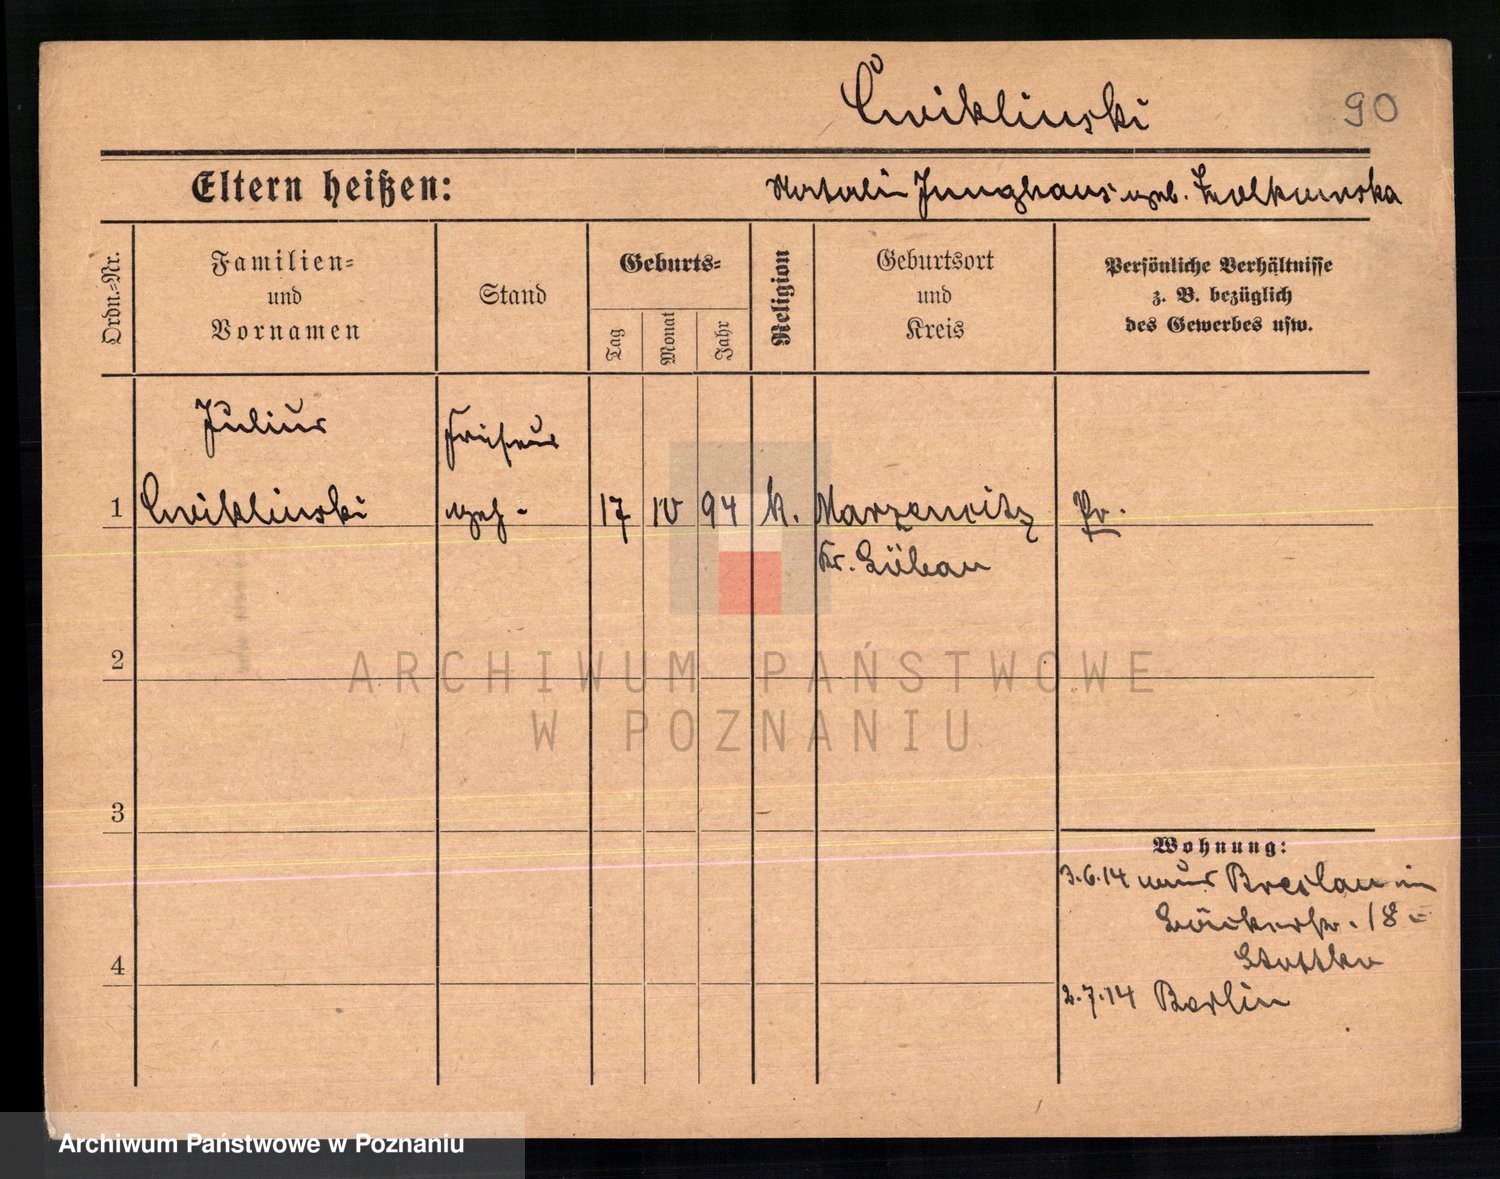 Cwiklinski
90
Eltern heißen:
Natalie Junghaus geb. Zolkowska
Ordn.-Nr.
Familien-
und
Vornamen
Stand
Geburts-
Tag
Monat
Jahr
Religion
Geburtsort
und
Kreis
Persönliche Verhältnisse
z. B. bezüglich
des Gewerbes usw.
Julius
Friseur
1 Cwiklinski
geh- 17 IV 94 k. Marzencitz Pr.
Kr. Löbau
2
3
4
Wohnung:
3.6.14 aus Breslau in
Bäckerstr. 18
2.7.14 Berlin
ARCHIWUM PAŃSTWOWE
W POZNANIU
Archiwum Państwowe w Poznaniu